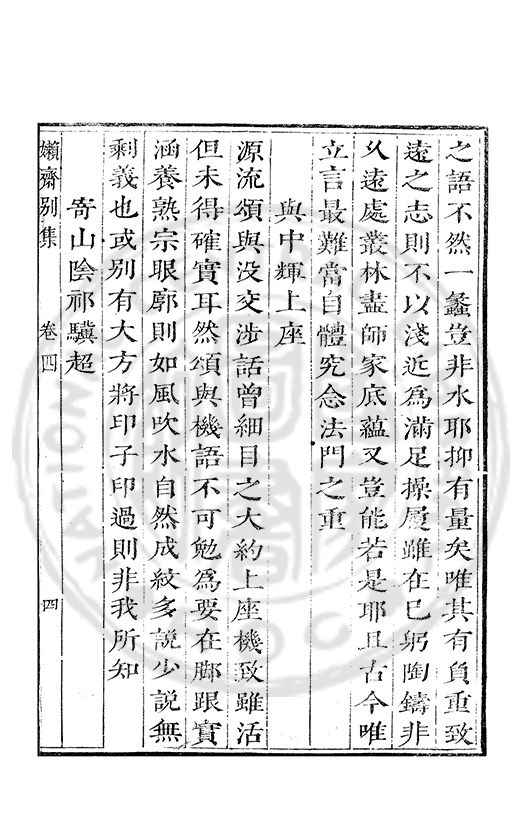 之語不然一蠡豈非水耶抑有量矣唯其有負重致
遠之志則不以淺近爲滿足操履雖在己躬陶鑄非
久遠處叢林盡師家底蘊又豈能若是耶且古今唯
立言最難當自體究念法門之重
與中輝上座
源流頌與没交涉話曾細目之大約上座機致雖活
但未得確實耳然頌與機語不可勉爲要在腳跟實
涵養熟宗眼廓則如風吹水自然成紋多說少說無
剩義也或别有大方將印子印過則非我所知
寄山陰祁驥超
嬾齋别集 卷四 四